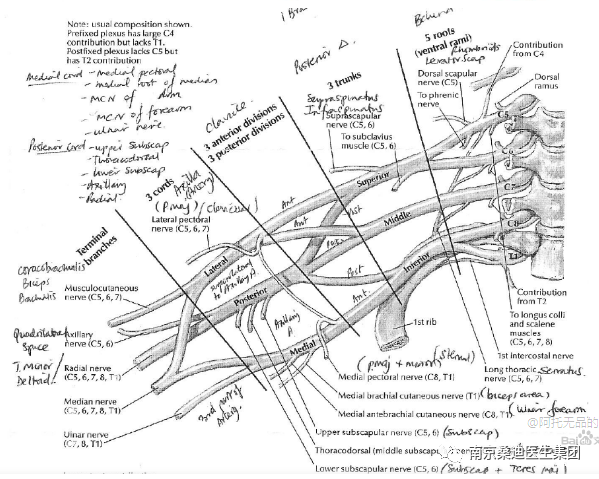 Note: usual composition shown.
Prefixed plexus has large C4
contribution but lacks T1.
Postfixed plexus lacks C5 but
has T2 contribution
Medial cord - medial pectoral
- medial root of median
- MCN of arm
- MCN of forearm
- ulnar nerve
Posterior cord - upper subscap
- Thoracodorsal
- lower subscap
- Axillary
- Radial
Terminal
branches
3 cords
Axilla
(P.maj) / (clavicular)
Clavicle
3 anterior divisions
3 posterior divisions
Posterior Δ.
3 trunks
Supraspinatus
Infraspinatus
Suprascapular
nerve (C5, 6)
To subclavius
muscle (C5, 6)
5 roots
(ventral rami)
Rhomboids
Levator scap
Dorsal scapular
nerve (C5)
To phrenic
nerve
Contribution
from C4
Dorsal
ramus
C5
C6
C7
C8
T1
Lateral pectoral
nerve (C5, 6, 7)
Superior
Middle
Inferior
Ant
Ant
Post
Post
Ant.
Lateral
Posterior
Medial
Axillary
A
coracobrachialis
Biceps
Brachialis
Musculocutaneous
nerve (C5, 6, 7)
Quadrilateral
Space
T. minor/
Deltoid
Axillary
nerve (C5, 6)
Radial nerve
(C5, 6, 7, 8, T1)
Median nerve
(C5, 6, 7, 8, T1)
Ulnar nerve
(C7, 8, T1)
3rd part of
1st rib
Contribution
from T2
To longus colli
and scalene
muscles
(C5, 6, 7, 8)
1st intercostal nerve
Long thoracic
nerve (C5, 6, 7)
Serratus
(pmaj + minor) (sternal)
Medial pectoral nerve (C8, T1)
Medial brachial cutaneous nerve (T1) (biceps area)
Medial antebrachial cutaneous nerve (C8, T1) (Ulnar forearm
Upper subscapular nerve (C5, 6) (Subscap)
Thoracodorsal (middle subscapu
Lower subscapular nerve (C5, 6) (Subscap + Teres maj)
@阿托无品的
Bai
南京桑迪医生集团